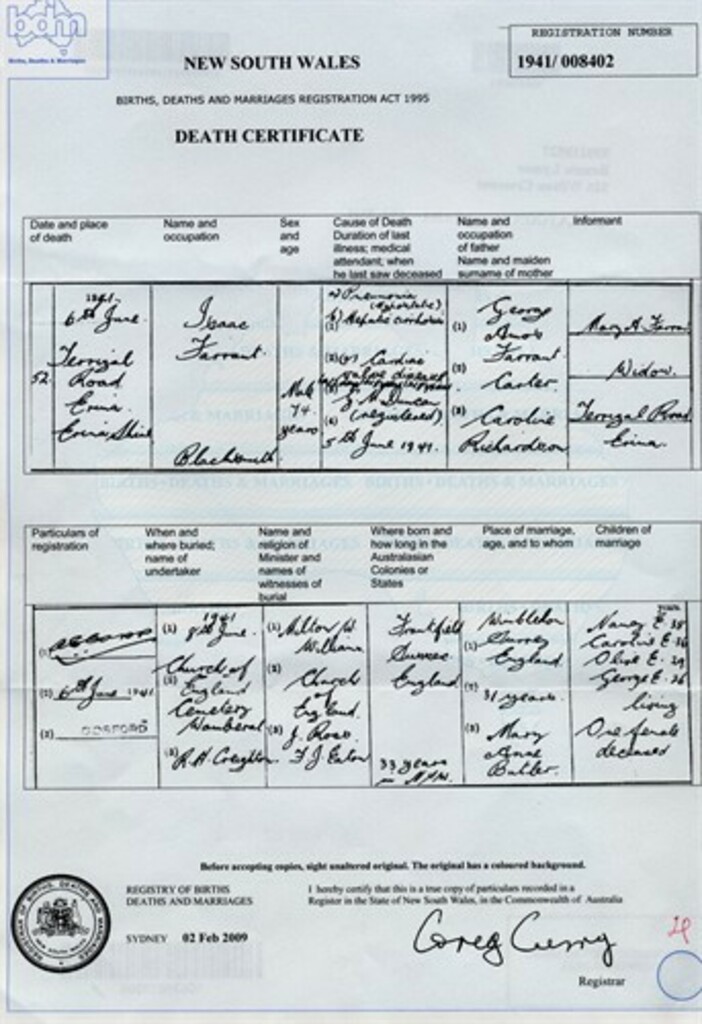 bdm
Births, Deaths & Marriages
REGISTRATION NUMBER
1941/ 008402
NEW SOUTH WALES
BIRTHS, DEATHS AND MARRIAGES REGISTRATION ACT 1995
DEATH CERTIFICATE
Date and place
of death
Name and
occupation
Sex
and
age
Cause of Death
Duration of last
illness; medical
attendant; when
he last saw deceased
Name and
occupation
of father
Name and maiden
surname of mother
Informant
1941.
6th June.
52. Terrigal
Road
Erina.
Erina Shire
Isaac
Farrant.
Blacksmith
Male
74
years
a) Pneumonia
(1) b) Hepatic cirrhosis
(2) Cardiac
valve disease
(3) G. M. Duncan
(4) (registered)
5th June 1941.
(1) George
Amos
Farrant
(2) Carter.
(3) Caroline
Richardson
Mary A. Farran
Widow.
Terrigal Road
Erina.
Particulars of
registration
When and
where buried;
name of
undertaker
Name and
religion of
Minister and
names of
witnesses of
burial
Where born and
how long in the
Australasian
Colonies or
States
Place of marriage,
age, and to whom
Children of
marriage
(1)
(2) 6th June 1941
(3) GOSFORD
1941
(1) 8th June.
Church of
(2) England
Cemetery
Wamberal
(3) R.H. Creighton
(1) Milton W.
Williams
(2) Church
of
England.
(3) J. Rose
F J. Eaton
Frankfield
Sussex
England
33 years
N.S.W.
Wimbledon
(1) Surrey
England.
(2) 31 years.
(3) Mary
Anne
Butler.
Years.
Nancy E. 38
Caroline E. 36
Olive E. 29
George E. 26
living
One female
deceased
Before accepting copies, sight unaltered original. The original has a coloured background.
REGISTRY OF BIRTHS
DEATHS AND MARRIAGES
SYDNEY 02 Feb 2009
I hereby certify that this is a true copy of particulars recorded in a
Register in the State of New South Wales, in the Commonwealth of Australia
Greg Curry
Registrar
REGISTRAR OF BIRTHS, DEATHS AND MARRIAGES
NEW SOUTH WALES